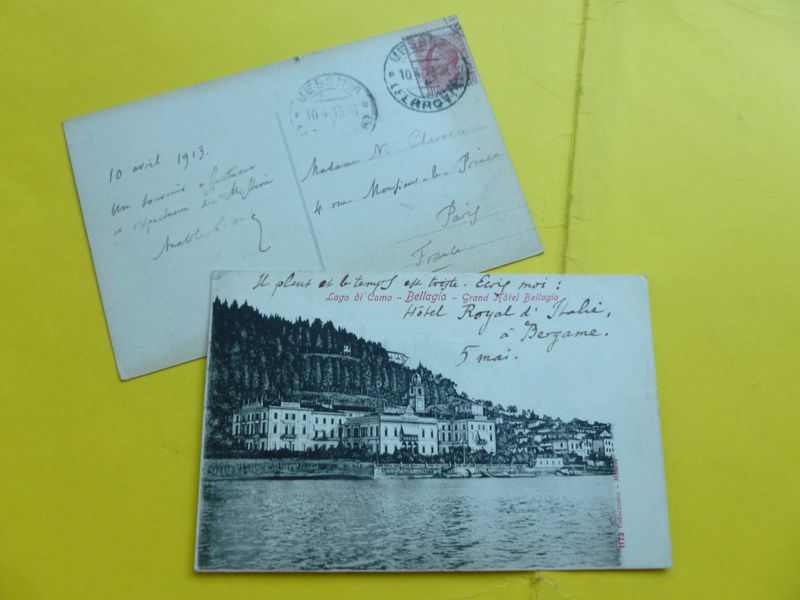 MESSINA
10.4.13
MESS
10.4
(FERROVIA
10 avril 1913.
Un souvenir
et respectueux de
Anatole
Madame N.
4 rue Monsieur-le-Prince
Paris
France.
Il pleut et le temps est triste. Ecris moi :
Lago di Como - Bellagio - Grand Hôtel Bellagio
Hôtel Royal d'Italie,
à Bergame.
5 mai.
1173 Fotocromo - Milano